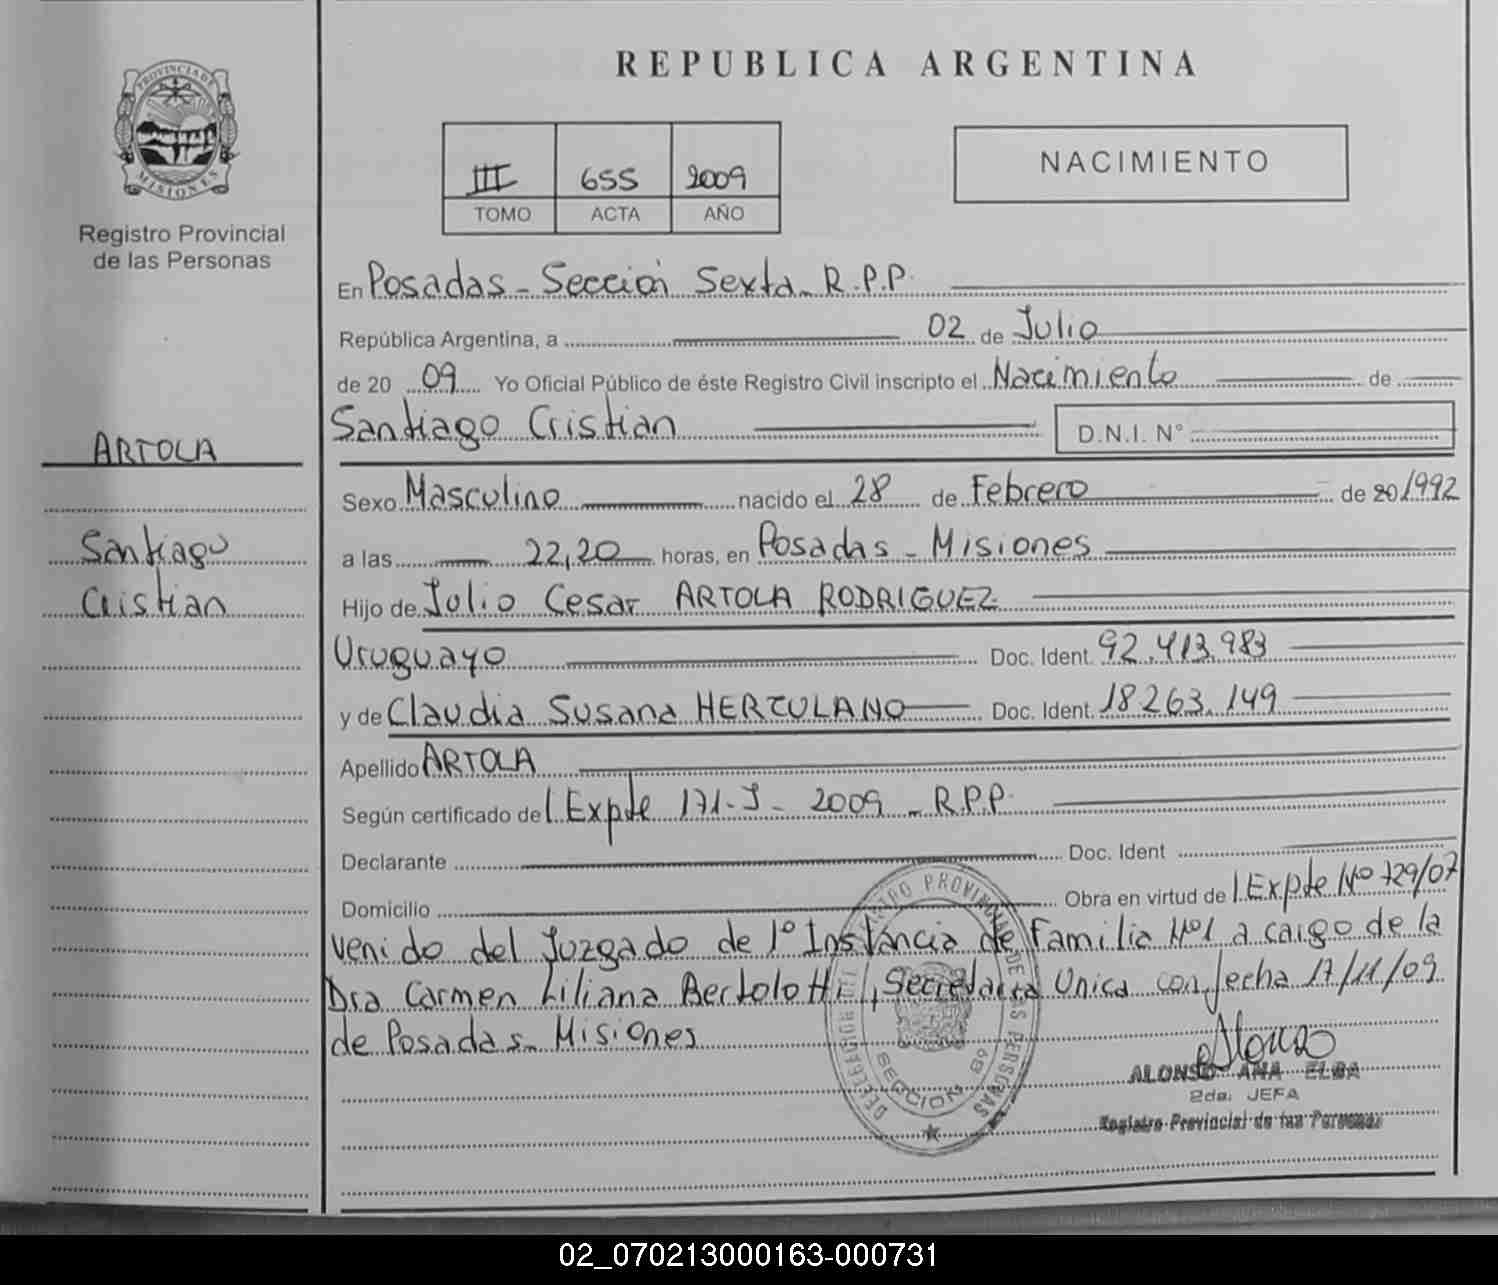 PROVINCIA DE
MISIONES
Registro Provincial
de las Personas
ARTOLA
Santiago
Cristian
REPUBLICA ARGENTINA
III 655 2009
TOMO ACTA AÑO
NACIMIENTO
En Posadas - Sección Sexta - R.P.P.
República Argentina, a 02 de Julio
de 20 09 Yo Oficial Público de éste Registro Civil inscripto el Nacimiento de
Santiago Cristian D.N.I. N°
Sexo Masculino nacido el 28 de Febrero de 20/1992
a las 22,20 horas, en Posadas - Misiones
Hijo de Julio Cesar ARTOLA RODRIGUEZ
Uruguayo Doc. Ident. 92.413.983
y de Claudia Susana HERCULANO Doc. Ident. 18263.149
Apellido ARTOLA
Según certificado de Expte 171-J- 2009 - R.P.P.
Declarante Doc. Ident
Domicilio Obra en virtud de Expte Nº 729/07
venido del Juzgado de 1º Instancia de Familia Nº1 a cargo de la
Dra Carmen Liliana Bertolotti, Secretaria Unica con fecha 17/11/09
de Posadas - Misiones
ALONSO ANA ELBA
2da. JEFA
Registro Provincial de las Personas
02_070213000163-000731